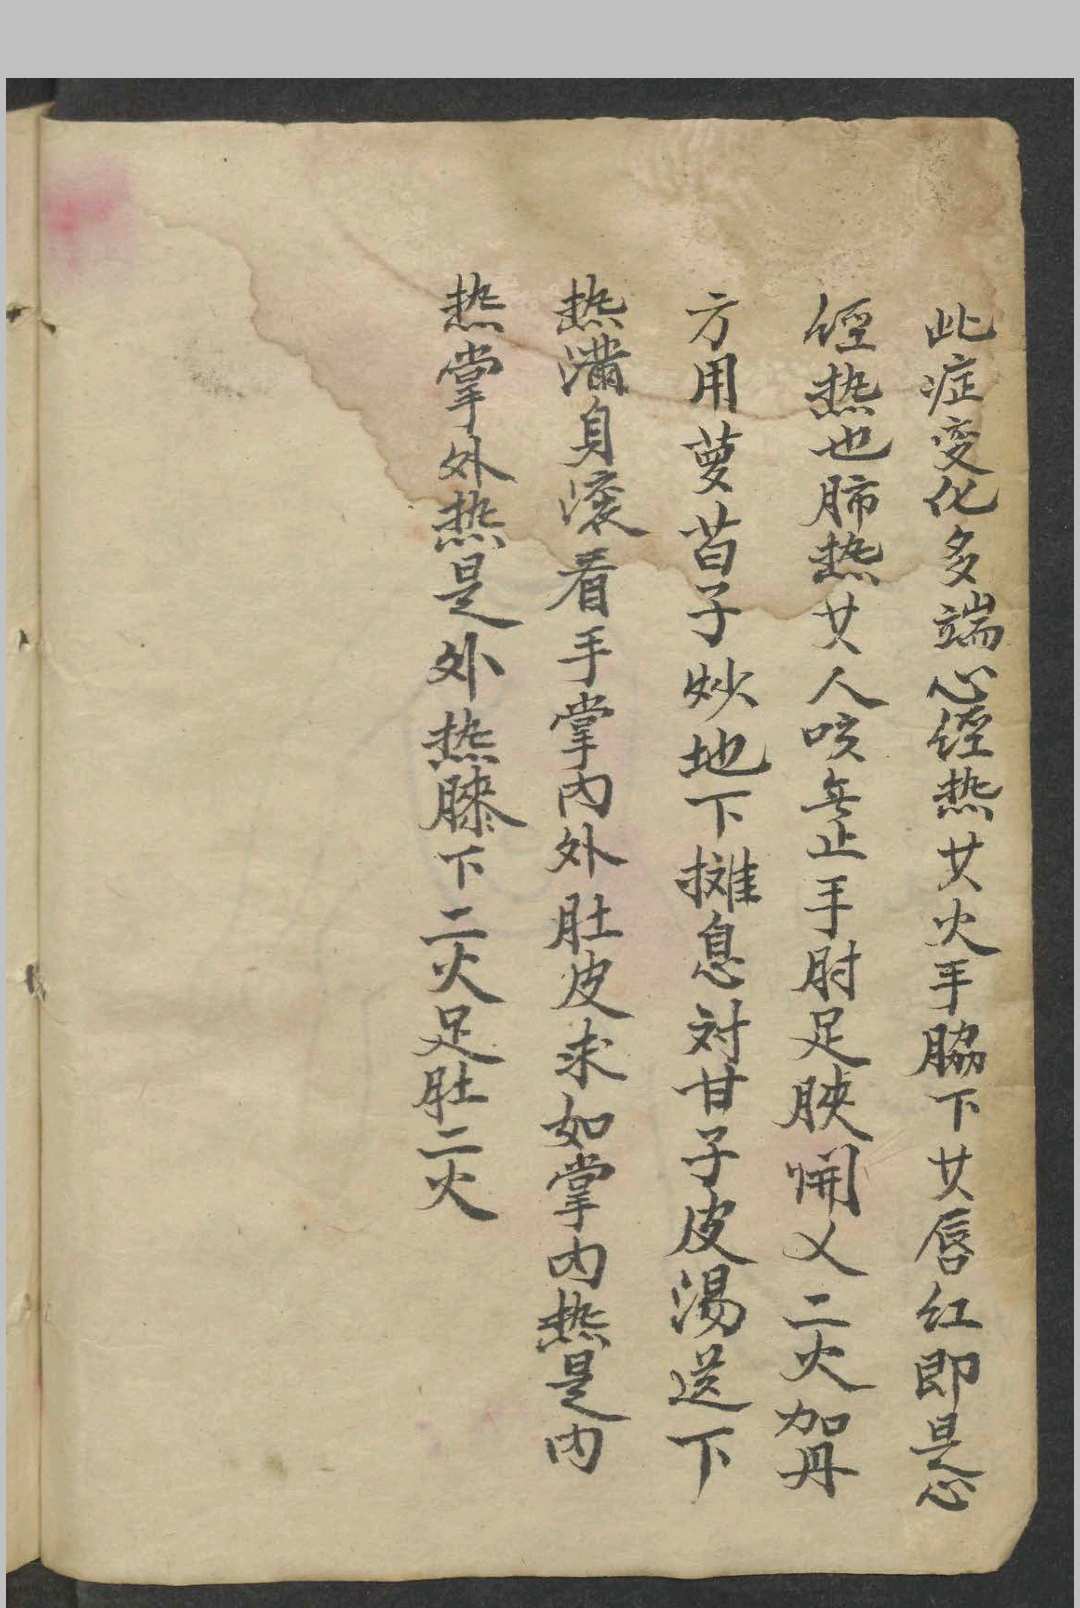 此症变化多端心经热女火手脇下女唇红即是心
经热也肺热女人咳無止手肘足腴開乂二火加丹
方用萝苩子炒地下摊息对甘子皮湯送下
热满身滚看手掌内外肚皮求如掌内热是内
热掌外热是外热膝下二火足肚二火